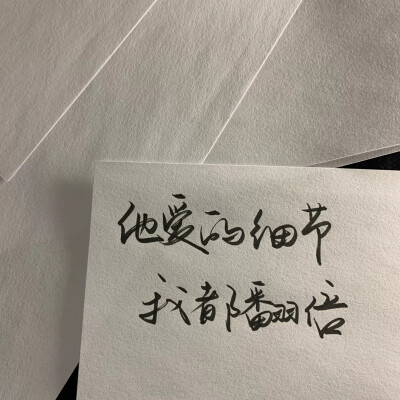 他爱的细节
我都翻倍